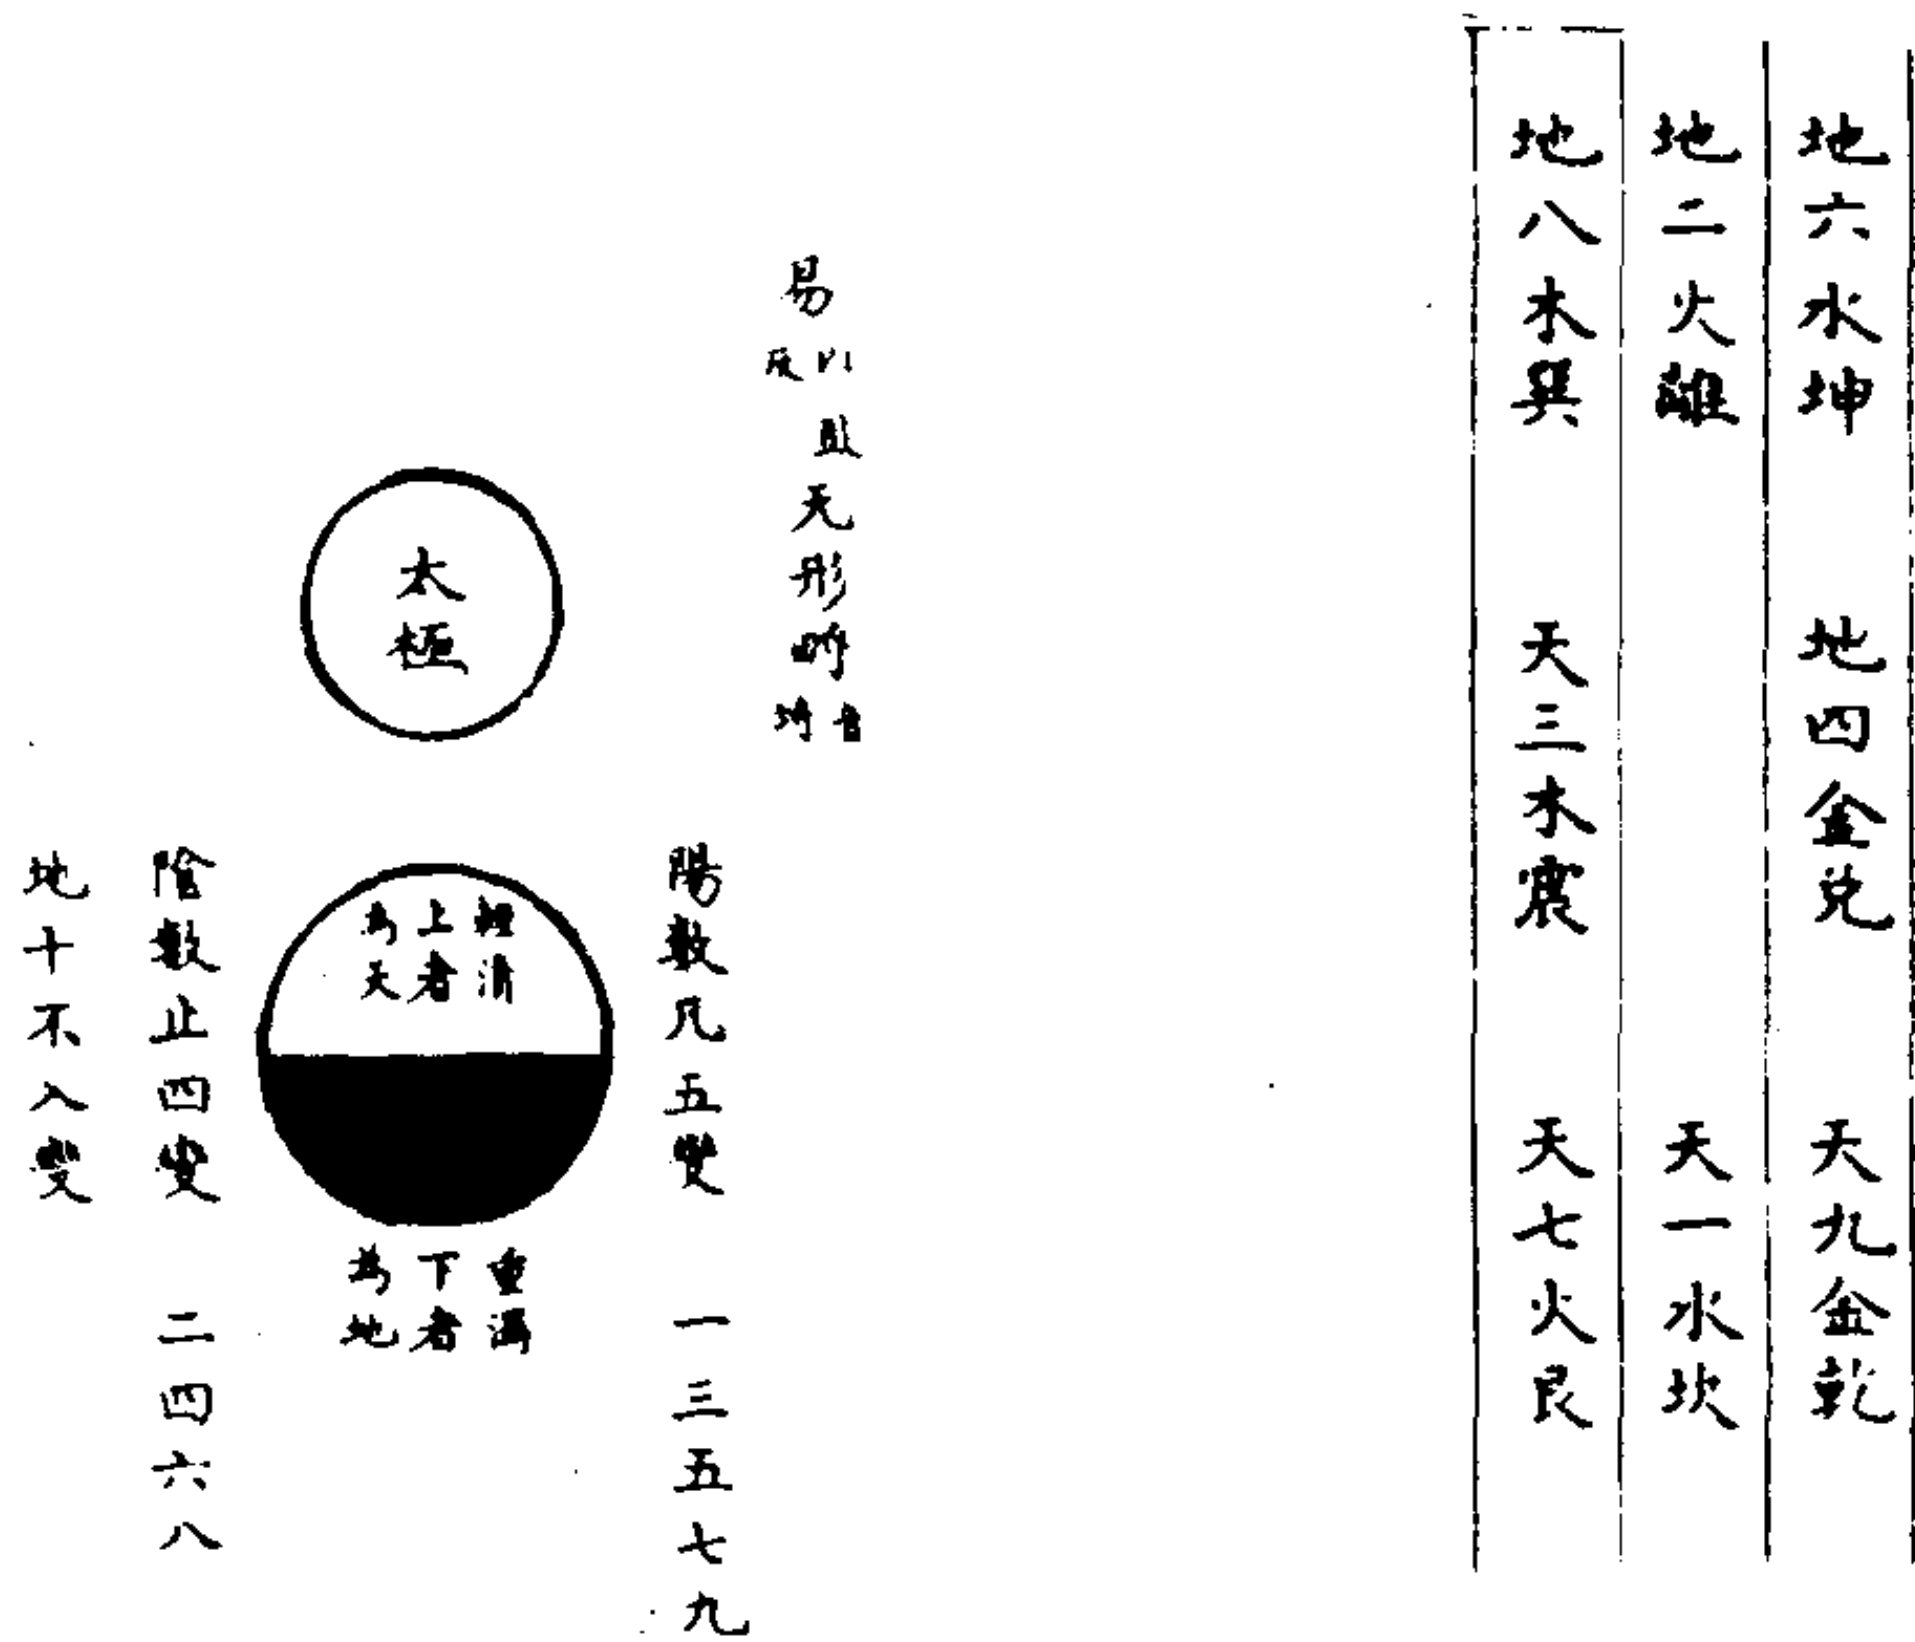 地六水坤　地四金兑　天九金乾
地二火離　天一水坎
地八木巽　天三木震　天七火艮
易
以
反
无形畔
音
埼
太極
陽數凡五變　一三五七九
輕清
上者
為天
重濁
下者
為地
陰數止四變　二四六八
地十不入變